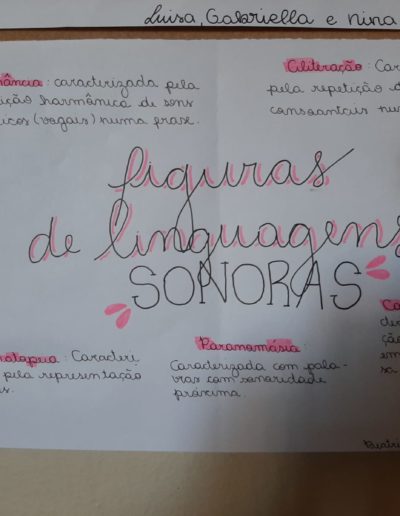 Luisa, Gabriella e Nina
nância: caracterizada pela
ição harmônica de sons
icos (vogais) numa frase.
Aliteração: Car
pela repetição d
consoantais nu
figuras
de linguagens
SONORAS
atopeia: Caracteri
pela representação
s.
Paronomásia:
Caracterizada com pala-
vras com sonoridade
próxima.
Ca
de
ção
em
sa
Beatri